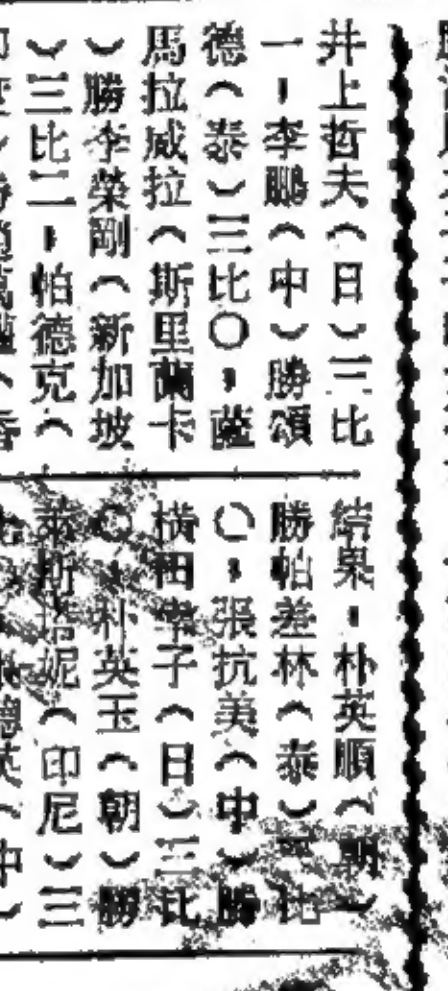 井上哲夫（日）三比
一，李鵬（中）勝頌
德（泰）三比〇，薩
馬拉威拉（斯里蘭卡
）勝李榮剛（新加坡
）三比二，帕德克（
結果，朴英順（朝）
勝帕差林（泰）三比
〇，張抗美（中）勝
橫田幸子（日）三比
〇，朴英玉（朝）勝
萊斯塔妮（印尼）三